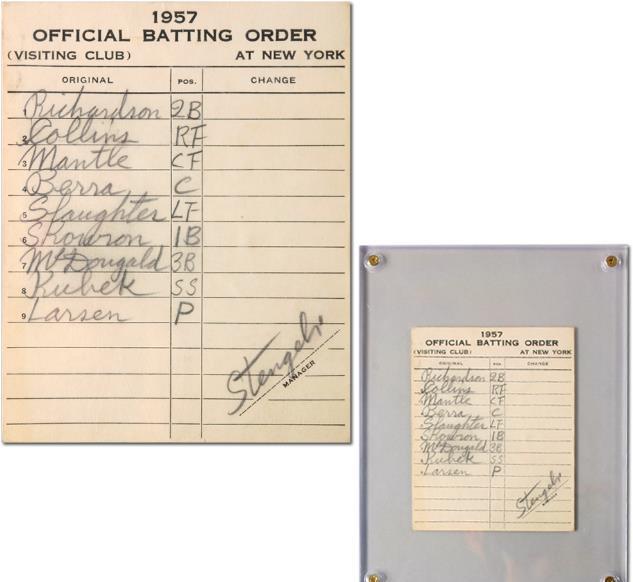 1957
OFFICIAL BATTING ORDER
(VISITING CLUB) AT NEW YORK
ORIGINAL POS. CHANGE
1 Richardson 2B
2 Collins RF
3 Mantle CF
4 Berra C
5 Slaughter LF
6 Skowron 1B
7 McDougald 3B
8 Kubek SS
9 Larsen P
Stengel
MANAGER
1957
OFFICIAL BATTING ORDER
(VISITING CLUB) AT NEW YORK
ORIGINAL POS. CHANGE
Richardson 2B
Collins RF
Mantle CF
Berra C
Slaughter LF
Skowron 1B
McDougald 3B
Kubek SS
Larsen P
Stengel